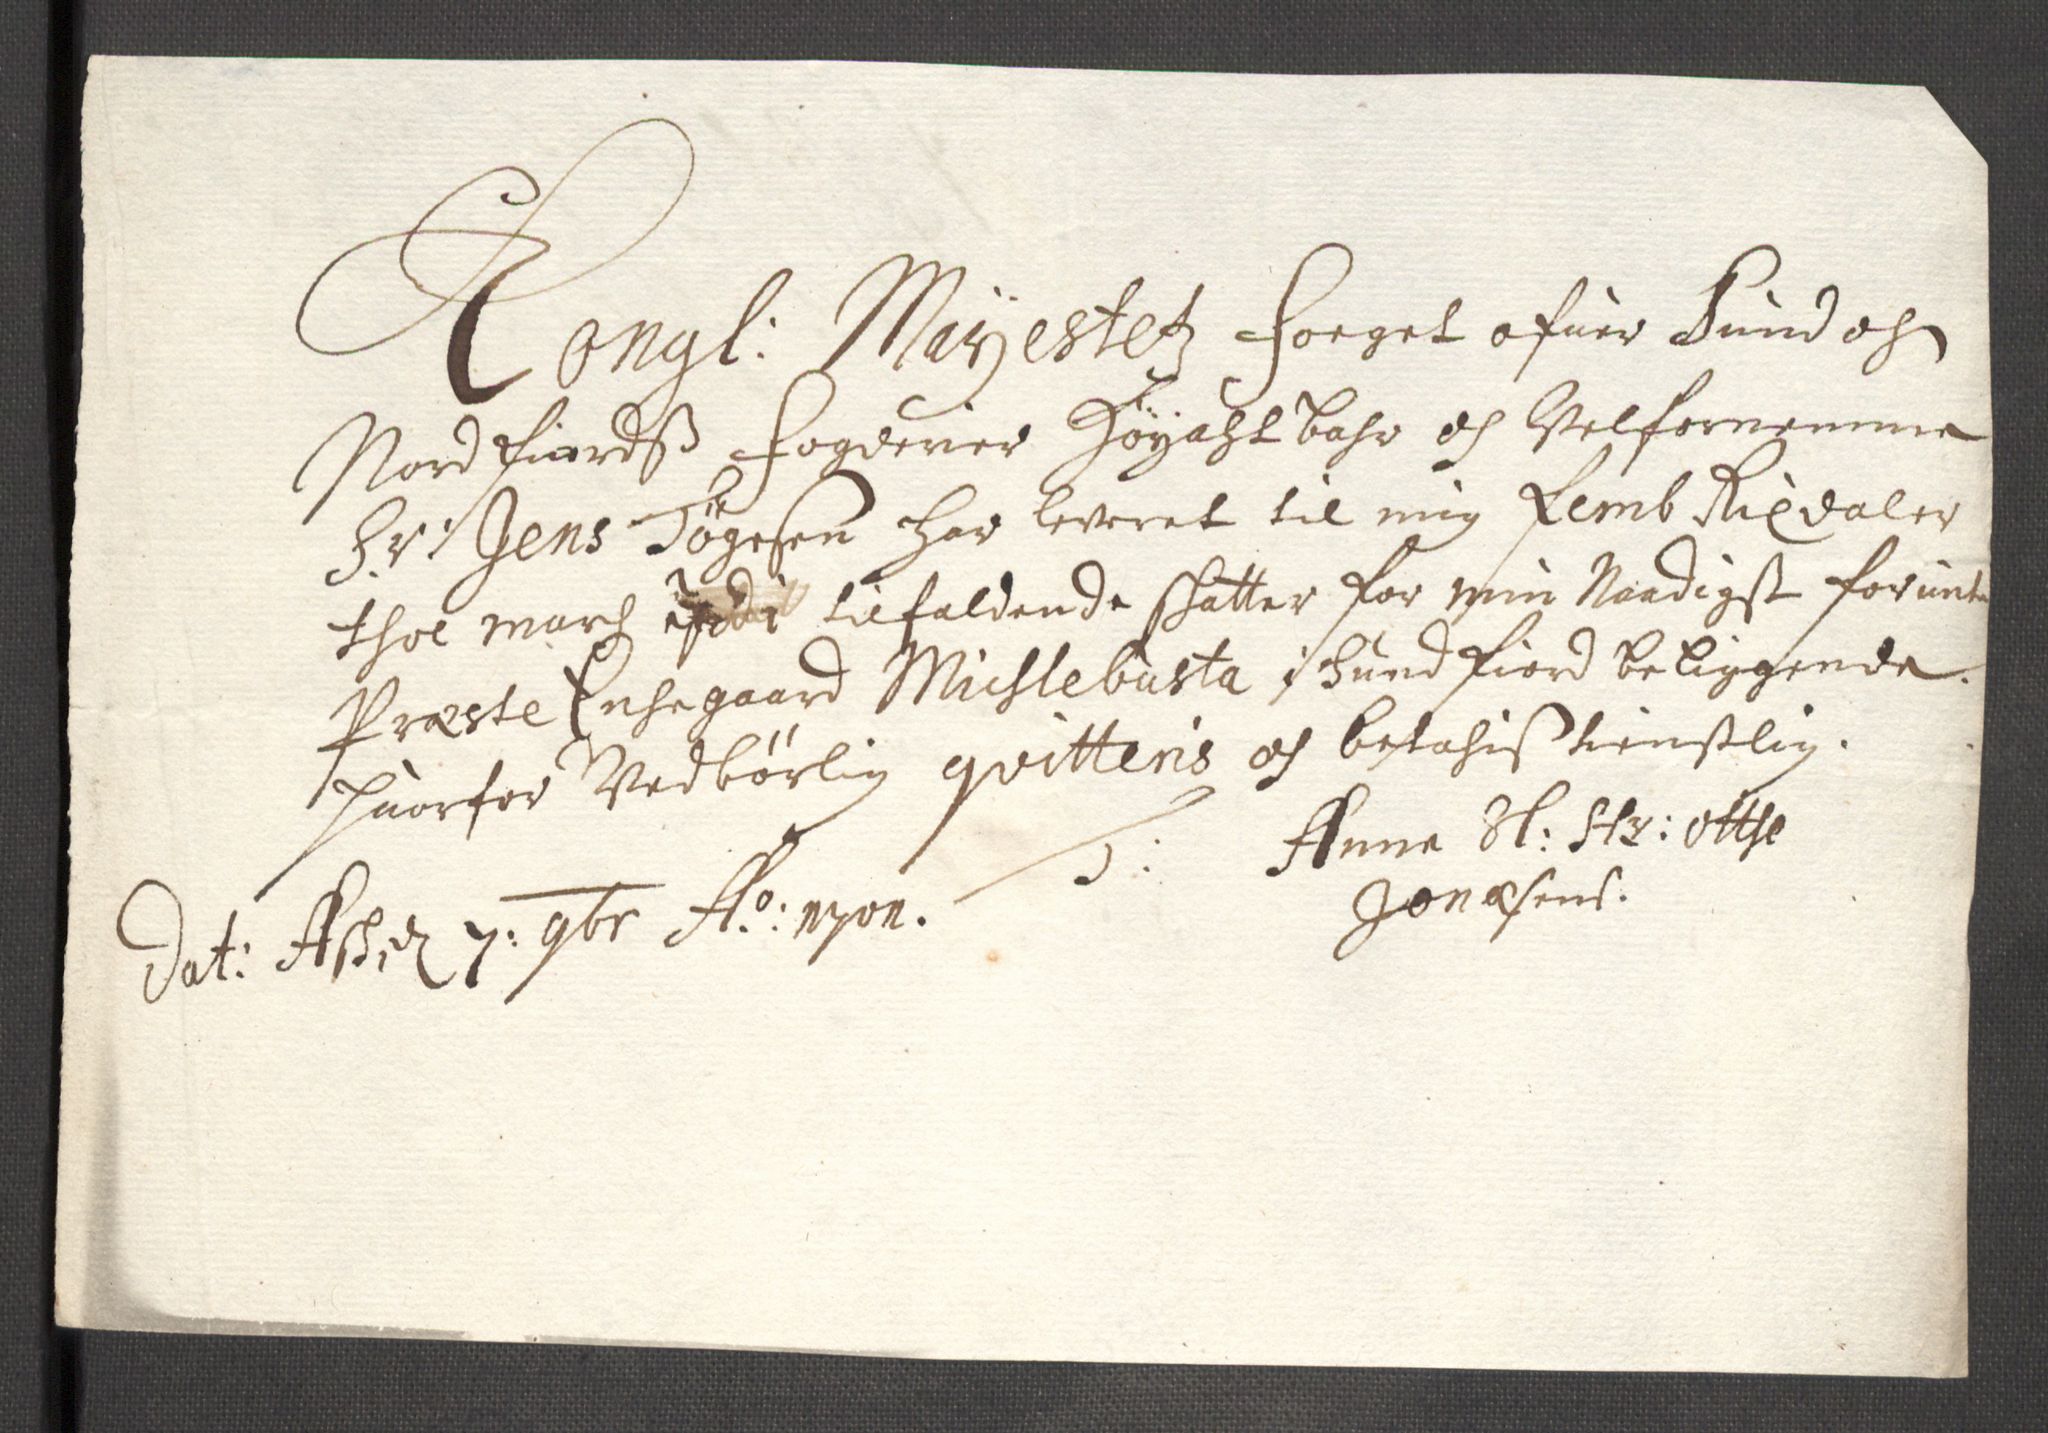 Kongl: Mayestetz Foeget ofuer Sund och
Nordfiordß Fogderier Höyachtbahr och Velfornemme
Hr: Jens Tögesen har leveret til mig Femb Rixdaler
thoe march tilfaldende skatter for min Naadigst forunte
Præste Enchegaard Michlebusta i Sundfiord beliggende.
huorfor Vedbörlig qvitteris och betachis tienstlig.
Anne Sl: Hr: Otthe
Jonæsens.
Dat: 7: 9br Ao: